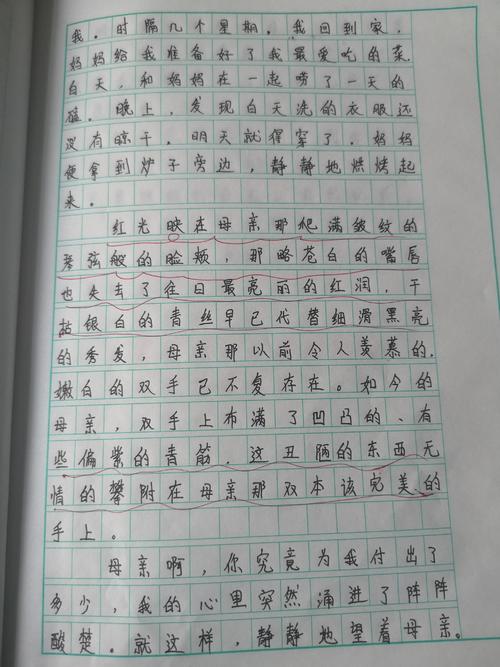 我。时隔几个星期，我回到家，
妈妈给我准备好了我最爱吃的菜
白天，和妈妈在一起唠了一天的
磕。晚上，发现白天洗的衣服还
没有晾干。明天就得穿了，妈妈
便拿到炉子旁边，静静地烘烤起
来。
红光映在母亲那爬满皱纹的
琴弦般的脸颊，那略苍白的嘴唇
也失去了往日最亮丽的红润，干
枯银白的青丝早已代替细滑黑亮
的秀发，母亲那以前令人羡慕的、
嫩白的双手已不复存在。如今的
母亲，双手上布满了凹凸的、有
些偏紫的青筋，这丑陋的东西无
情的攀附在母亲那双本该完美的
手上。
母亲啊，你究竟为我付出了
多少，我的心里突然涌进了阵阵
酸楚。就这样，静静地望着母亲。